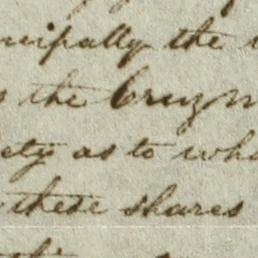 ncipally the
the Cruzn
ety as to wh
these shares